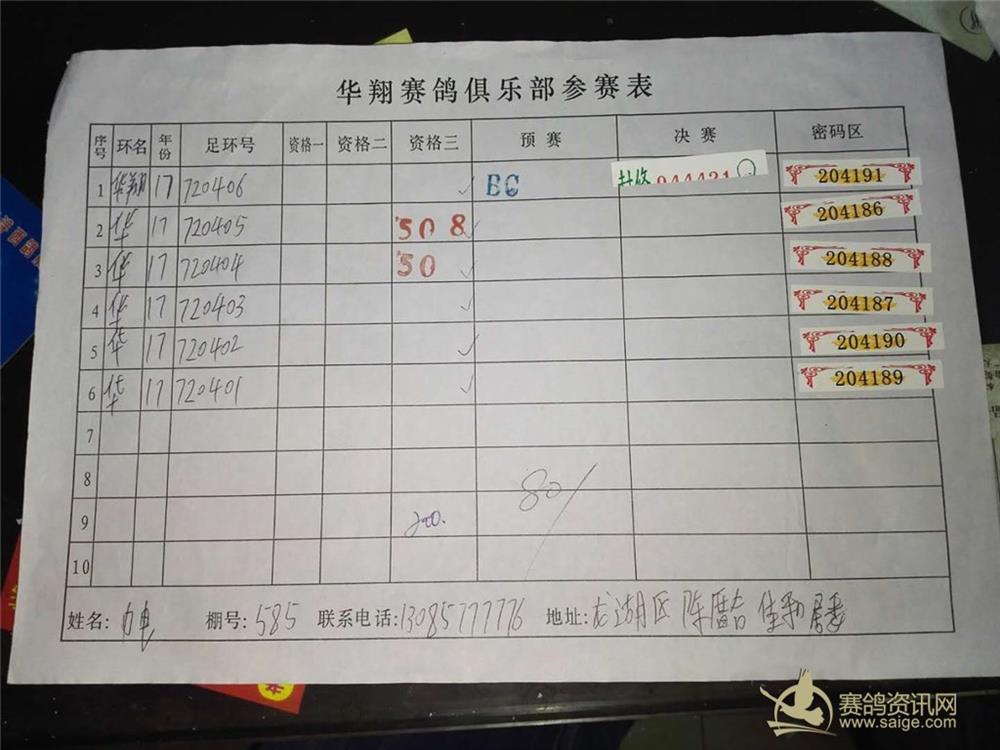 华翔赛鸽俱乐部参赛表
序号 环名 年份 足环号 资格一 资格二 资格三 预赛 决赛 密码区
1 华翔 17 720406 ✓ BC 204191
2 华 17 720405 508 204186
3 华 17 720404 50 ✓ 204188
4 华 17 720403 ✓ 204187
5 华 17 720402 ✓ 204190
6 华 17 720401 ✓ 204189
7
8 80/
9 200.
10
姓名: 棚号: 585 联系电话: 13085777776 地址: 龙湖区
赛鸽资讯网
www.saige.com